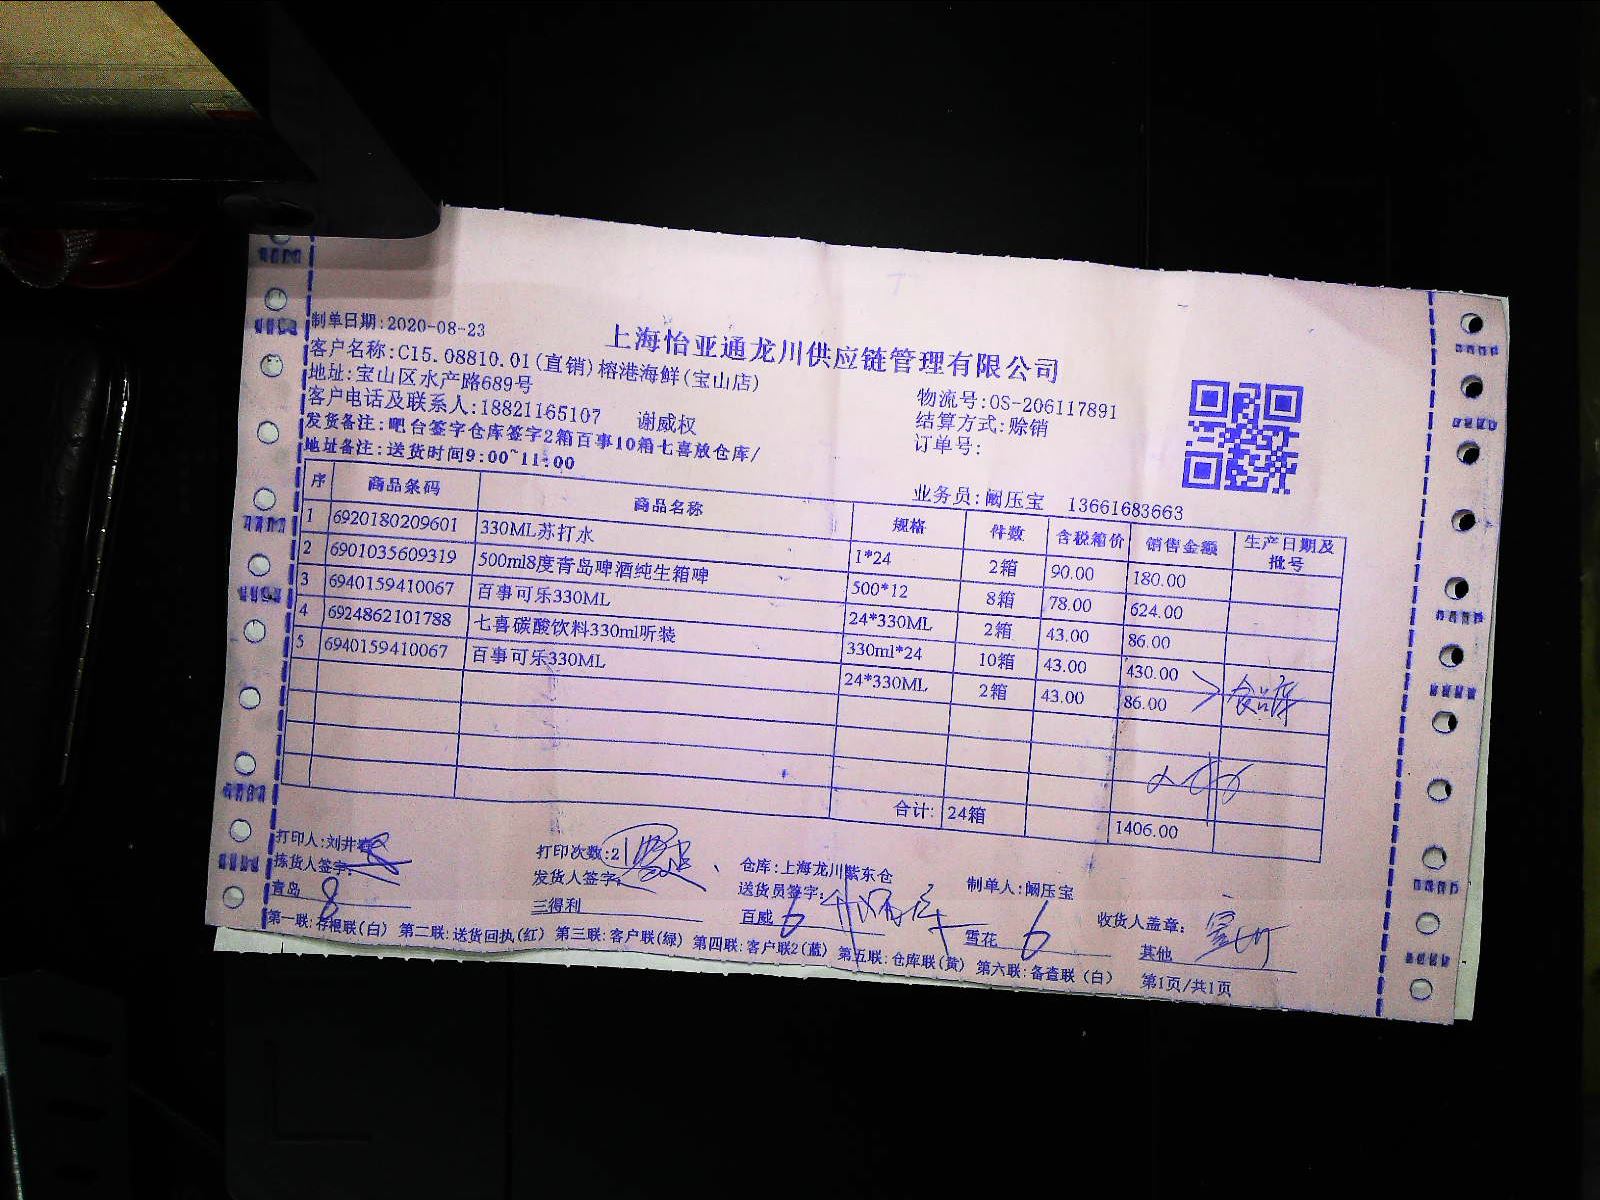 制单日期:2020-08-23
上海怡亚通龙川供应链管理有限公司
客户名称:C15.08810.01(直销)榕港海鲜(宝山店)
地址:宝山区水产路689号
物流号:OS-206117891
客户电话及联系人:18821165107 谢威权
结算方式:赊销
发货备注:吧台签字仓库签字2箱百事10箱七喜放仓库/
订单号:
地址备注:送货时间9:00~11:00
业务员:阚压宝 13661683663
序 商品条码 商品名称 规格 件数 含税箱价 销售金额 生产日期及批号
1 6920180209601 330ML苏打水 1*24 2箱 90.00 180.00
2 6901035609319 500ml8度青岛啤酒纯生箱啤 500*12 8箱 78.00 624.00
3 6940159410067 百事可乐330ML 24*330ML 2箱 43.00 86.00
4 6924862101788 七喜碳酸饮料330ml听装 330ml*24 10箱 43.00 430.00
5 6940159410067 百事可乐330ML 24*330ML 2箱 43.00 86.00
食品库
合计: 24箱 1406.00
打印人:刘井 打印次数:2 仓库:上海龙川紫东仓 制单人:阚压宝
拣货人签字: 发货人签字: 送货员签字: 收货人盖章:
青岛 8 三得利 百威 6 雪花 6 其他
第一联:存根联(白) 第二联:送货回执(红) 第三联:客户联(绿) 第四联:客户联2(蓝) 第五联:仓库联(黄) 第六联:备查联(白) 第1页/共1页